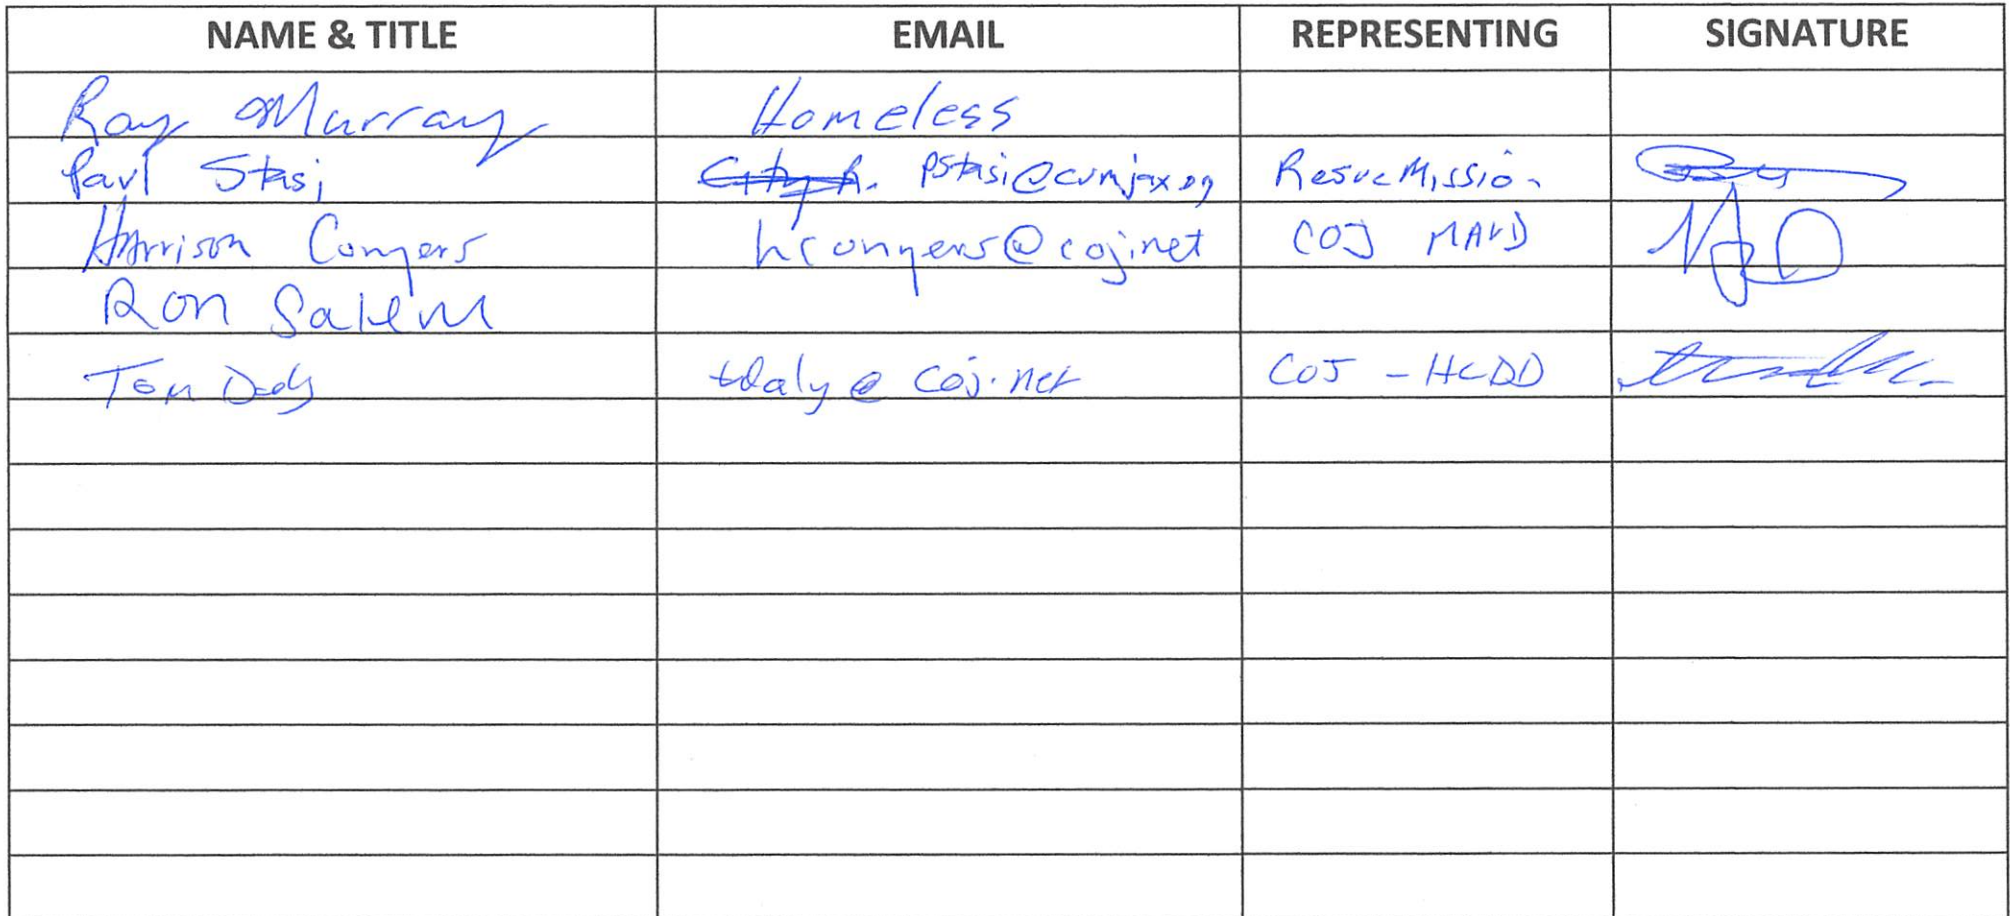 NAME & TITLE EMAIL REPRESENTING SIGNATURE
Ray Murray Homeless
Paul Stasi pstasi@crmjax.org Rescue Mission
Harrison Conyers hconyers@coj.net COJ MAVD
Ron Salem
Tom Daly tdaly@coj.net COJ - HCDD